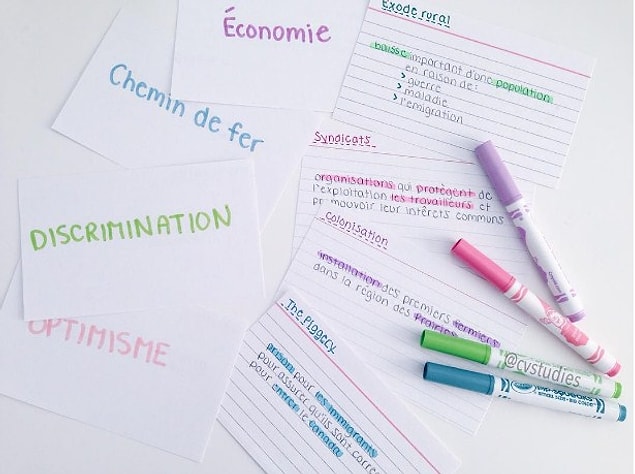 Économie
Chemin de fer
DISCRIMINATION
OPTIMISME
Exode rural
baisse important d'une population
en raison de:
> guerre
> maladie
> l'émigration
Syndicats
organisations qui protègent de
l'exploitation les travailleurs et
pr mouvoir leur intérêts communs
Colonisation
installation des premiers fermiers
dans la région des Prairies
The Piggery
prison pour les immigrants
pour assurer qu'ils sont correc
pour entrer le Canada
@cvstudies